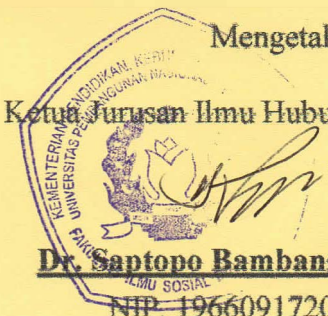 Mengetal
Ketua Jurusan Ilmu Hubu
KEMENTERIAN PENDIDIKAN,
UNIVERSITAS PEMBANGUNAN NASIONAL
FAKU ILMU SOSIAL
Dr. Saptopo Bamban
NIP 1966091720